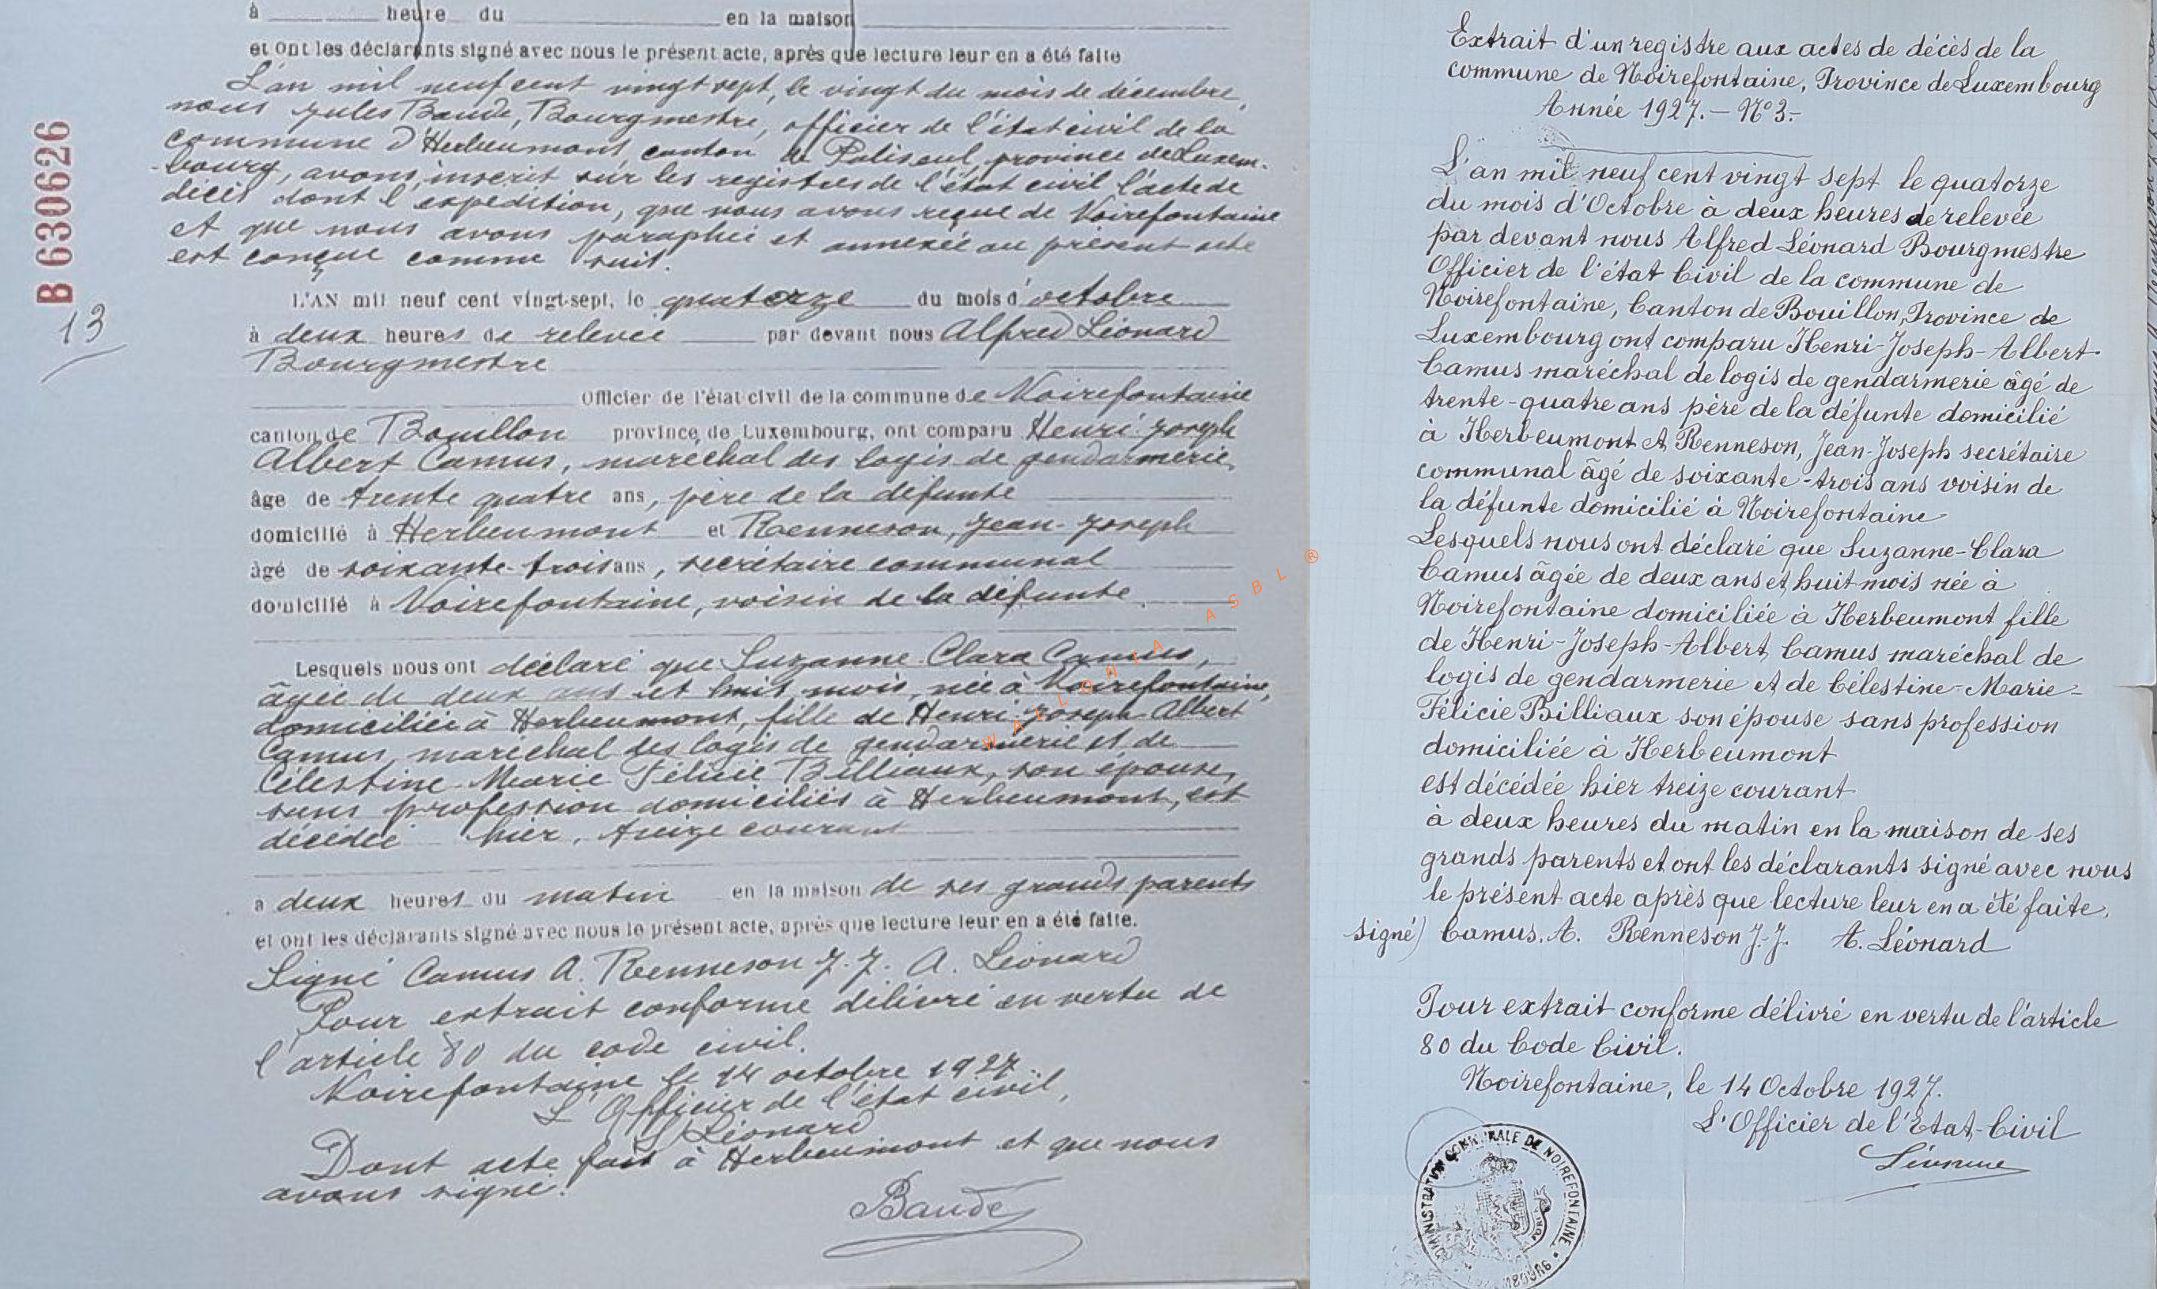 à heure du en la maison
et ont les déclarants signé avec nous le présent acte, après que lecture leur en a été faite
L'an mil neuf cent vingt sept, le vingt du mois de décembre,
nous Jules Baudé, Bourgmestre, officier de l'état civil de la
commune d'Herbeumont canton de Paliseul, province de Luxem-
-bourg, avons inscrit sur les registres de l'état civil l'acte de
décès dont l'expédition, que nous avons reçue de Noirefontaine
et que nous avons paraphée et annexée au présent acte
est conçue comme suit.
B 630626
13
L'AN mil neuf cent vingt-sept, le quatorze du mois d'octobre
à deux heures de relevée par devant nous Alfred Léonard
Bourgmestre
Officier de l'état civil de la commune de Noirefontaine
canton de Bouillon province de Luxembourg, ont comparu Henri-Joseph
Albert Camus, maréchal des logis de gendarmerie,
âgé de trente quatre ans, père de la défunte
domicilié à Herbeumont et Renneson, Jean-Joseph
âgé de soixante-trois ans, secrétaire communal
domicilié à Noirefontaine, voisin de la défunte
Lesquels nous ont déclaré que Suzanne-Clara Camus,
âgée de deux ans et huit mois, née à Noirefontaine,
domiciliée à Herbeumont, fille de Henri-Joseph-Albert
Camus, maréchal des logis de gendarmerie et de
Célestine-Marie Félicie Billiaux, son épouse,
sans profession domiciliés à Herbeumont, est
décédée hier, treize courant
à deux heures du matin en la maison de ses grands parents
et ont les déclarants signé avec nous le présent acte, après que lecture leur en a été faite.
Signé Camus A. Renneson J. J. A. Léonard
Pour extrait conforme délivré en vertu de
l'article 80 du code civil.
Noirefontaine le 14 octobre 1927
L'Officier de l'état civil,
Léonard
Dont acte fait à Herbeumont et que nous
avons signé.
Baudé
WALLONIA ASBL ®
Extrait d'un registre aux actes de décès de la
commune de Noirefontaine, Province de Luxembourg
Année 1927. - N° 3. -
L'an mil neuf cent vingt sept le quatorze
du mois d'Octobre à deux heures de relevée
par devant nous Alfred Léonard Bourgmestre
Officier de l'état Civil de la commune de
Noirefontaine, Canton de Bouillon, Province de
Luxembourg ont comparu Henri-Joseph-Albert
Camus maréchal de logis de gendarmerie âgé de
trente-quatre ans père de la défunte domicilié
à Herbeumont et Renneson, Jean-Joseph secrétaire
communal âgé de soixante-trois ans voisin de
la défunte domicilié à Noirefontaine
Lesquels nous ont déclaré que Suzanne-Clara
Camus âgée de deux ans et huit mois née à
Noirefontaine domiciliée à Herbeumont fille
de Henri-Joseph-Albert Camus maréchal de
logis de gendarmerie et de Célestine-Marie-
Félicie Billiaux son épouse sans profession
domiciliée à Herbeumont
est décédée hier treize courant
à deux heures du matin en la maison de ses
grands parents et ont les déclarants signé avec nous
le présent acte après que lecture leur en a été faite.
signé) Camus. A. Renneson J.-J. A. Léonard
Pour extrait conforme délivré en vertu de l'article
80 du Code Civil.
Noirefontaine, le 14 Octobre 1927.
L'Officier de l'Etat-Civil
Léonard
ADMINISTRATION COMMUNALE DE NOIREFONTAINE